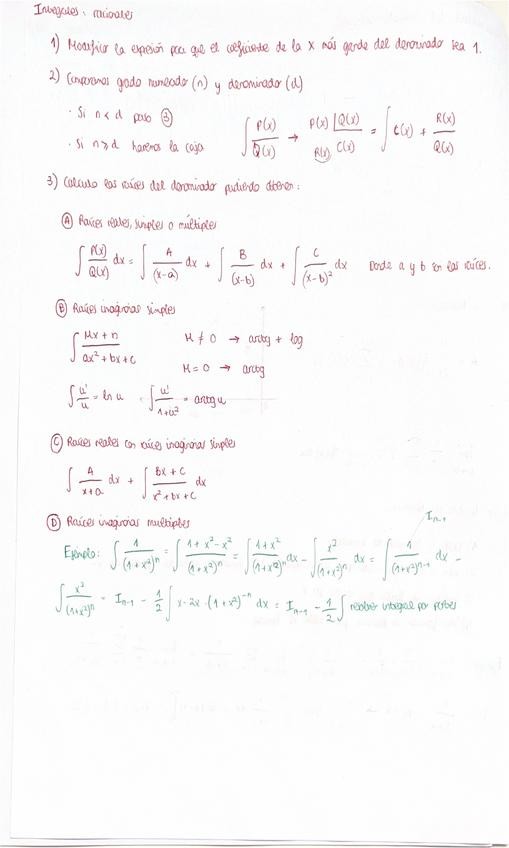 Integrales: racionales
1) Modifico la expresión para que el coeficiente de la x más grande del denominador sea 1.
2) Comparamos grado numerador (n) y denominador (d)
· Si n < d paso ③
· Si n ⩾ d haremos la caja ∫ P(x)/Q(x) → P(x) |Q(x) R(x) C(x) = ∫ C(x) + R(x)/Q(x)
3) Calculo las raíces del denominador pudiendo obtener:
Ⓐ Raíces reales, simples o múltiples
∫ P(x)/Q(x) dx = ∫ A/(x-a) dx + ∫ B/(x-b) dx + ∫ C/(x-b)² dx Donde a y b son las raíces.
Ⓑ Raíces imaginarias simples
∫ Mx+n/ax²+bx+c M ≠ 0 → arctg + log
M = 0 → arctg
∫ u'/u = ln u ∫ u'/1+u² = arctg u
Ⓒ Raíces reales con raíces imaginarias simples
∫ A/x+a dx + ∫ Bx+C/x²+bx+c dx
Ⓓ Raíces imaginarias multiples
I n-1
Ejemplo: ∫ 1/(1+x²)ⁿ = ∫ 1+x²-x²/(1+x²)ⁿ = ∫ 1+x²/(1+x²)ⁿ dx - ∫ x²/(1+x²)ⁿ dx = ∫ 1/(1+x²)ⁿ⁻¹ dx -
∫ x²/(1+x²)ⁿ = I n-1 - 1/2 ∫ x·2x·(1+x²)⁻ⁿ dx = I n-1 - 1/2 ∫ resolver integral por partes